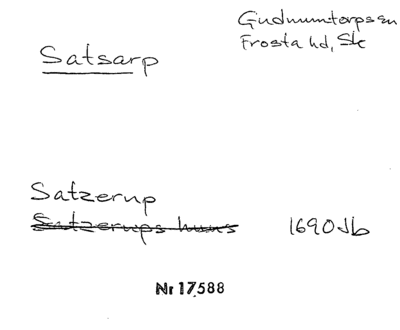 Gudmuntorps sn
Frosta hd, Sk
Satsarp
Satzerup
Satzerups huus
1690 Jb
Nr 17588